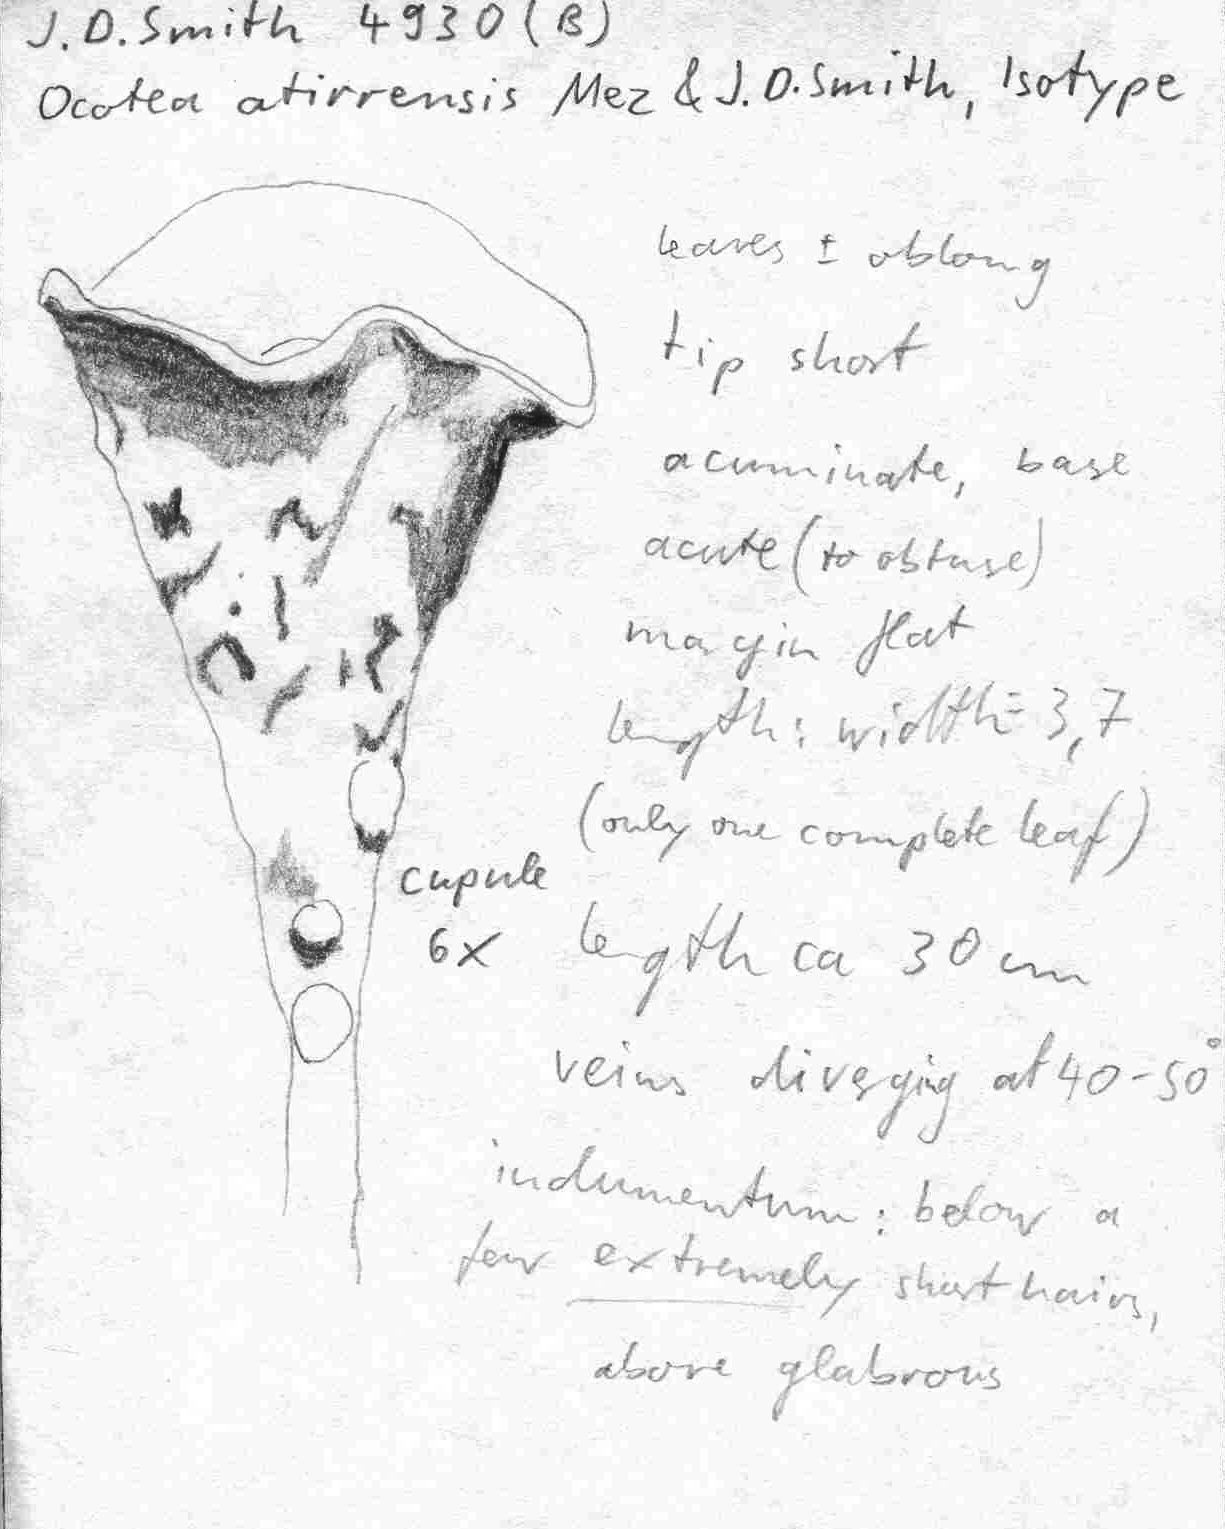 J.D.Smith 4930 (B)
Ocotea atirrensis Mez & J.D.Smith, Isotype
leaves ± oblong
tip short
acuminate, base
acute (to obtuse)
margin flat
length : width = 3,7
(only one complete leaf)
cupule
6x
length ca 30 cm
veins diverging at 40-50°
indumentum : below a
few extremely short hairs,
above glabrous